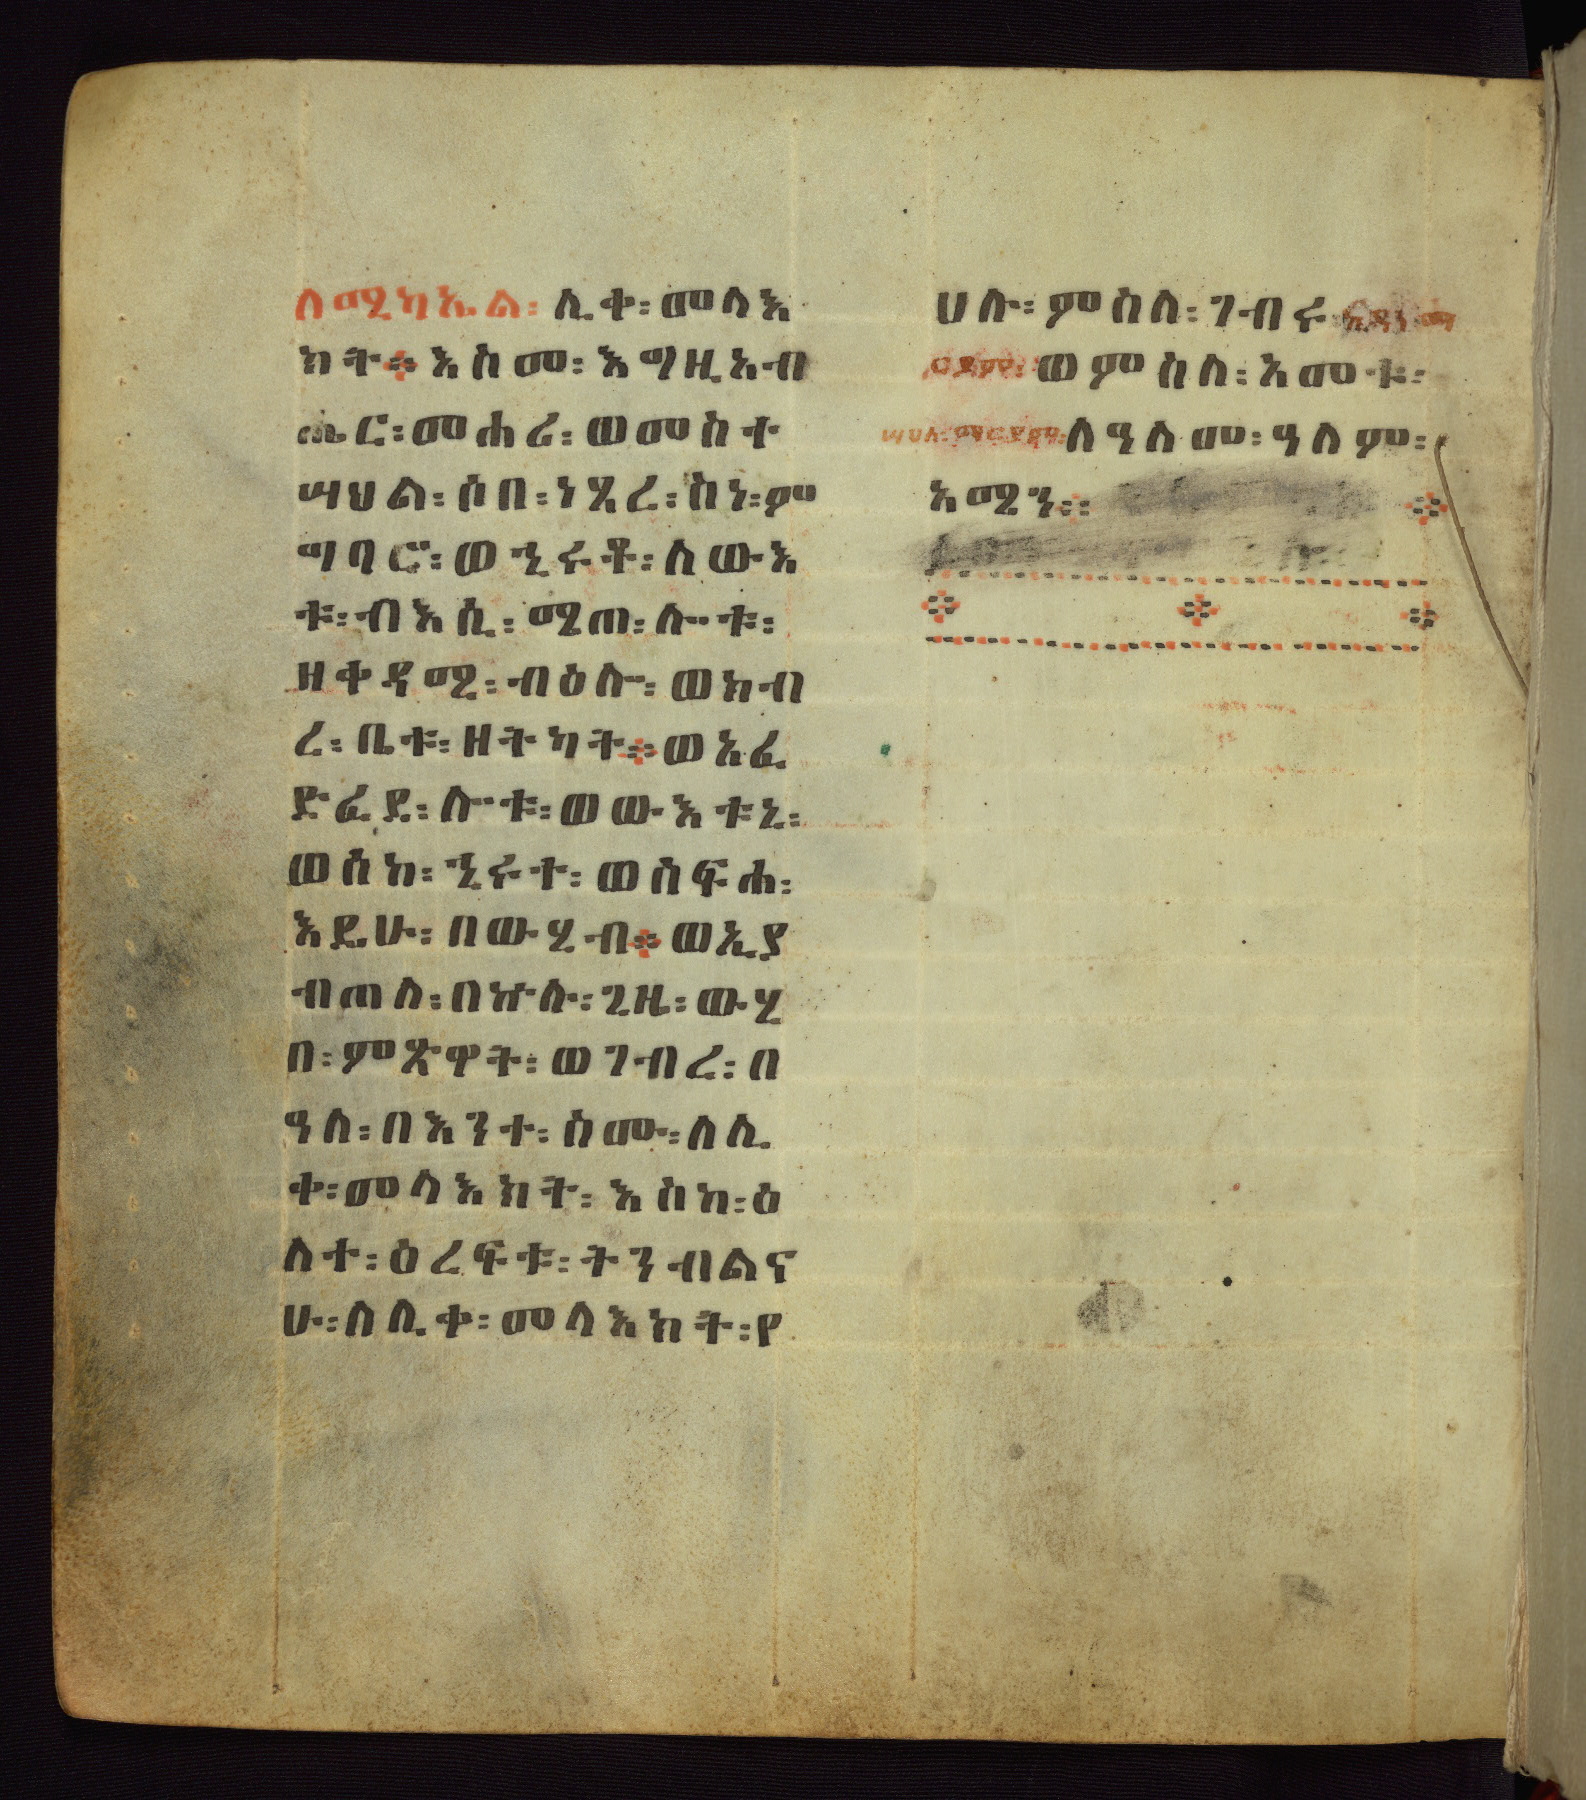 ለሚካኤል፡ ሊቀ፡ መላእ
ክት። እስመ፡ እግዚአብ
ሔር፡ መሐሪ፡ ወመስተ
ሣህል፡ ሶበ፡ ነጺረ፡ ስነ፡ ም
ግባር፡ ወኂሩቶ፡ ለውእ
ቱ፡ ብእሲ፡ ሜጠ፡ ሎቱ፡
ዘቀዳሚ፡ ብዕሎ፡ ወክብ
ረ፡ ቤቱ፡ ዘትካት። ወአፈ
ድፈደ፡ ሎቱ፡ ወውእቱኒ፡
ወሰከ፡ ኂሩተ፡ ወሰፍሐ፡
እዴሁ፡ በውሂብ። ወኢያ
ብጠለ፡ በኵሉ፡ ጊዜ፡ ውሂ
በ፡ ምጽዋት፡ ወገብረ፡ በ
ዓለ፡ በእንተ፡ ስሙ፡ ለሊ
ቀ፡ መላእክት፡ እስከ፡ ዕ
ለተ፡ ዕረፍቱ፡ ትንብልና
ሁ፡ ለሊቀ፡ መላእክት፡ የ
ሀሉ፡ ምስለ፡ ገብሩ፡
ወምስለ፡ አመቱ፡
ለዓለመ፡ ዓለም፡
አሜን፡፡